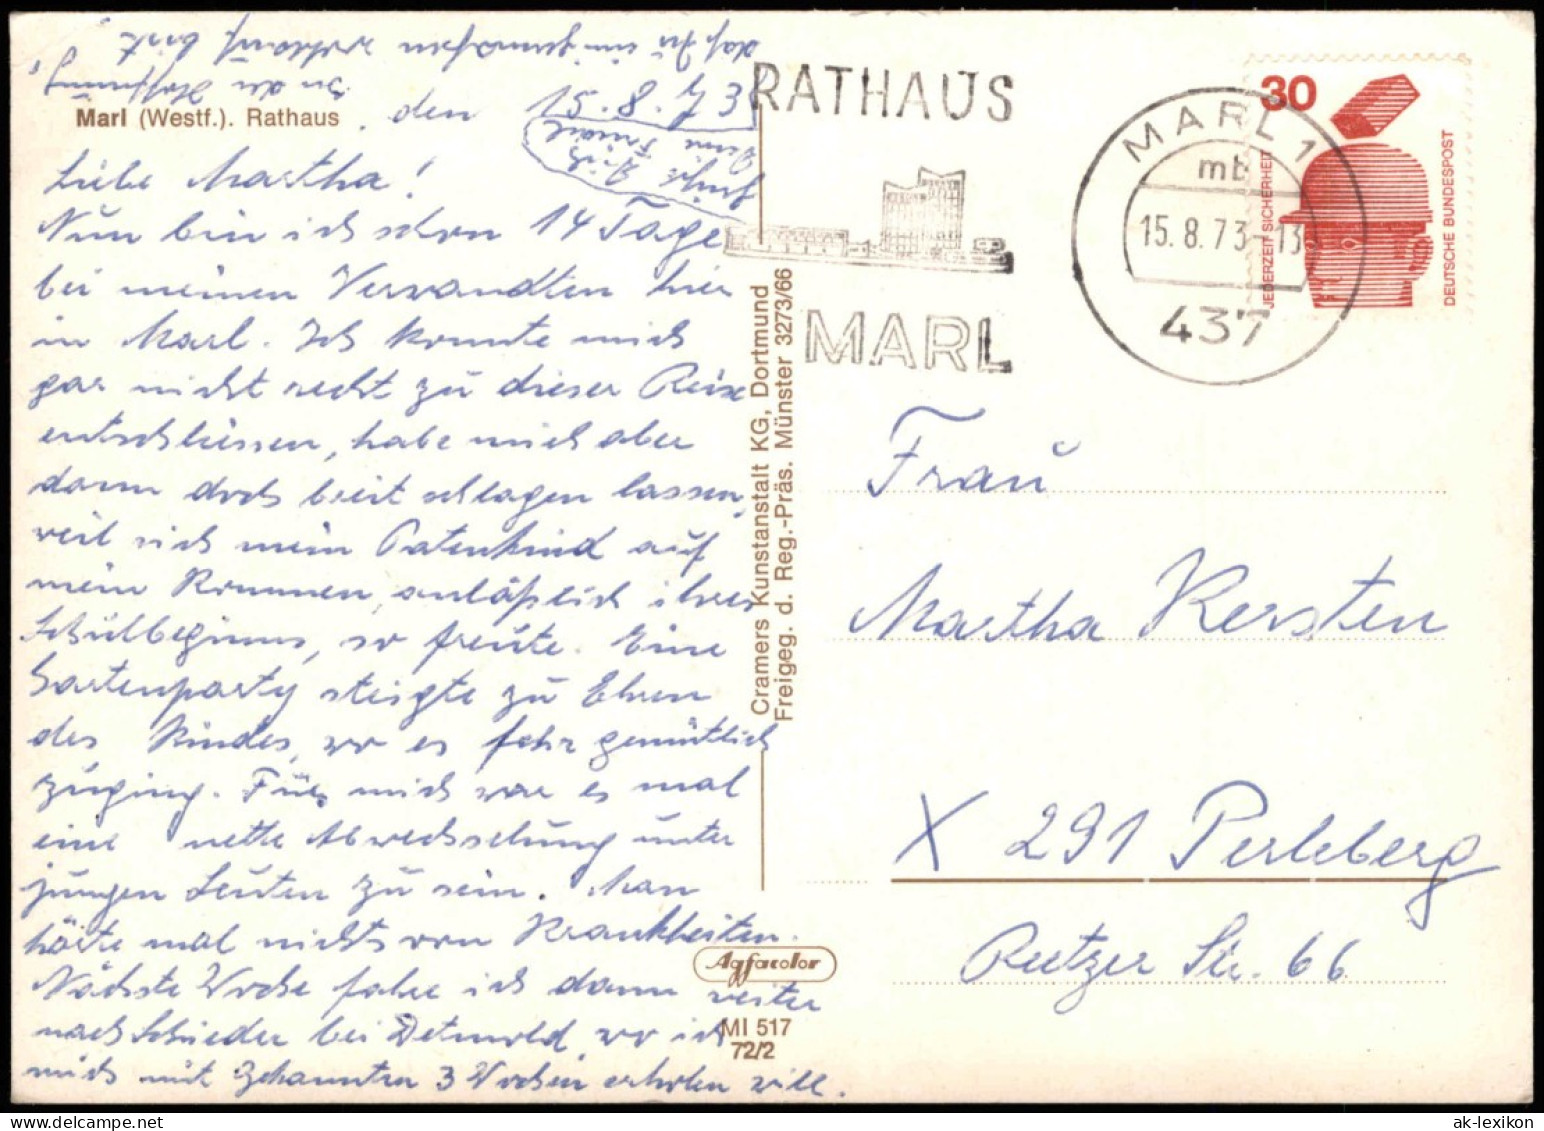 Marl (Westf.). Rathaus
den 15.8.73
Liebe Martha!
Nun bin ich schon 14 Tage
bei meinen Verwandten hier
in Marl. Ich konnte mich
gar nicht recht zu dieser Reise
entschliessen, habe mich aber
dann doch breit schlagen lassen,
weil sich mein Patenkind auf
mein Kommen, anläßlich ihres
Schulbeginns, so freute. Eine
Gartenparty steigte zu Ehren
des Kindes, wo es sehr gemütlich
zuging. Für mich war es mal
eine nette Abwechselung unter
jungen Leuten zu sein. Man
hörte mal nichts von Krankheiten.
Nächste Woche fahre ich dann weiter
nach Schieder bei Detmold, wo ich
mich mit Bekannten 3 Wochen erholen will.
In der Hoffnung,
daß Du einigermaßen wohlauf bist
grüßt Dich
Deine Friedel
Cramers Kunstanstalt KG, Dortmund
Freigeg. d. Reg.-Präs. Münster 3273/66
Agfacolor
MI 517
72/2
RATHAUS
MARL
MARL 1
mb
15.8.73-13
437
30
JEDERZEIT SICHERHEIT
DEUTSCHE BUNDESPOST
Frau
Martha Kersten
X 291 Perleberg
Reetzer Str. 66
ak-lexikon.com